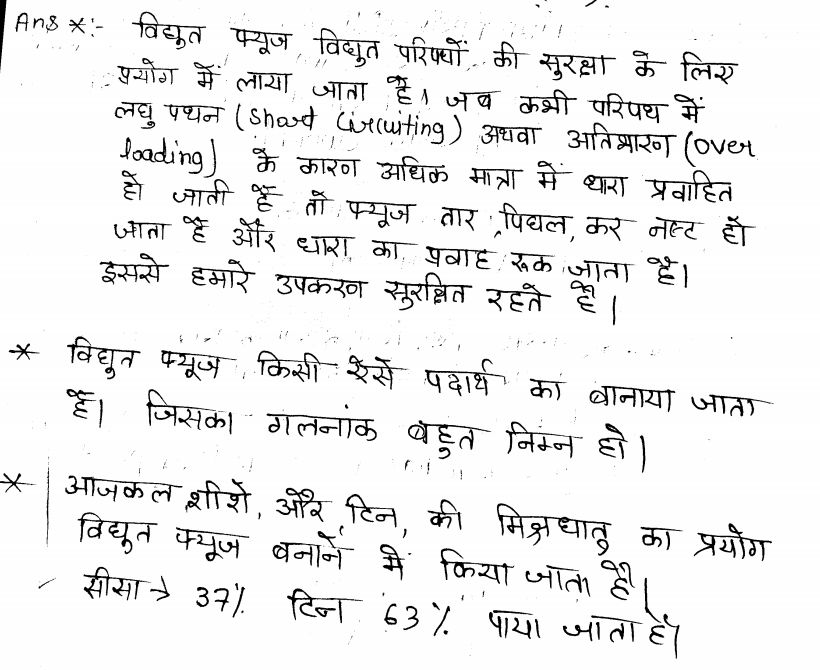 Ans *:- विद्युत फ्यूज विद्युत परिपथों की सुरक्षा के लिए
प्रयोग में लाया जाता है। जब कभी परिपथ में
लघु पथन (Short Circuiting) अथवा अतिभारण (over
loading) के कारण अधिक मात्रा में धारा प्रवाहित
हो जाती हैं तो फ्यूज तार पिघल कर नष्ट हो
जाता है और धारा का प्रवाह रूक जाता है।
इससे हमारे उपकरण सुरक्षित रहते हैं।
* विद्युत फ्यूज किसी ऐसे पदार्थ का बानाया जाता
है। जिसका गलनांक बहुत निम्न हो।
* आजकल शीशे, और टिन, की मिश्रधातु का प्रयोग
विद्युत फ्यूज बनाने में किया जाता है।
सीसा → 37% टिन 63% पाया जाता है।